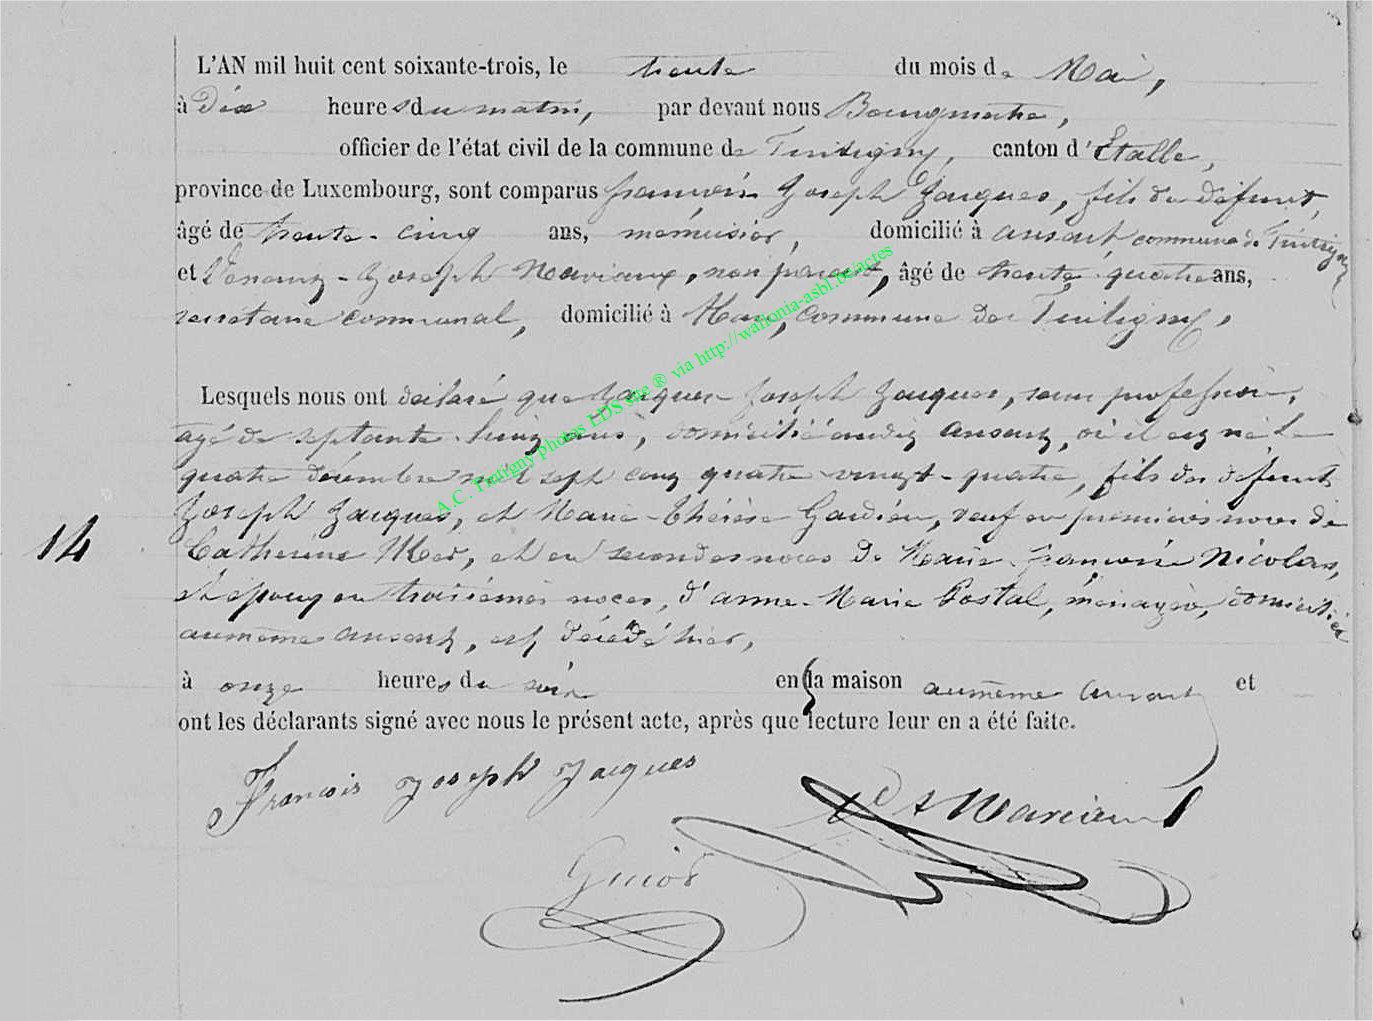 L'AN mil huit cent soixante-trois, le trente du mois de Mai,
à Dix heures du matin, par devant nous Bourgmestre,
officier de l'état civil de la commune de Tintigny, canton d'Etalle,
province de Luxembourg, sont comparus françois Joseph Jacques, fils du défunt,
âgé de trente-cinq ans, menuisier, domicilié à ansart commune de Tintigny
et Joseph non parent, âgé de trente quatre ans,
secrétaire communal, domicilié à Han, commune de Tintigny,
Lesquels nous ont déclaré que Jacques Joseph Jacques, sans profession,
agé de septante-huit ans, domicilié audit ansart, où il est né le
quatre décembre mil sept cent quatre-vingt-quatre, fils des défunts
Joseph Jacques, et Marie-Thérèse veuf en premières noces de
Catherine et en secondes noces de Marie-françoise Nicolas,
et époux en troisièmes noces, d'anne-Marie Postal, ménagère, domiciliée
au même ansart, est décédé hier,
à onze heures du soir en la maison au même ansart et
ont les déclarants signé avec nous le présent acte, après que lecture leur en a été faite.
14
François Joseph Jacques
A.C. Tintigny photos LDS site ® via http://wallonia-asbl.be/actes